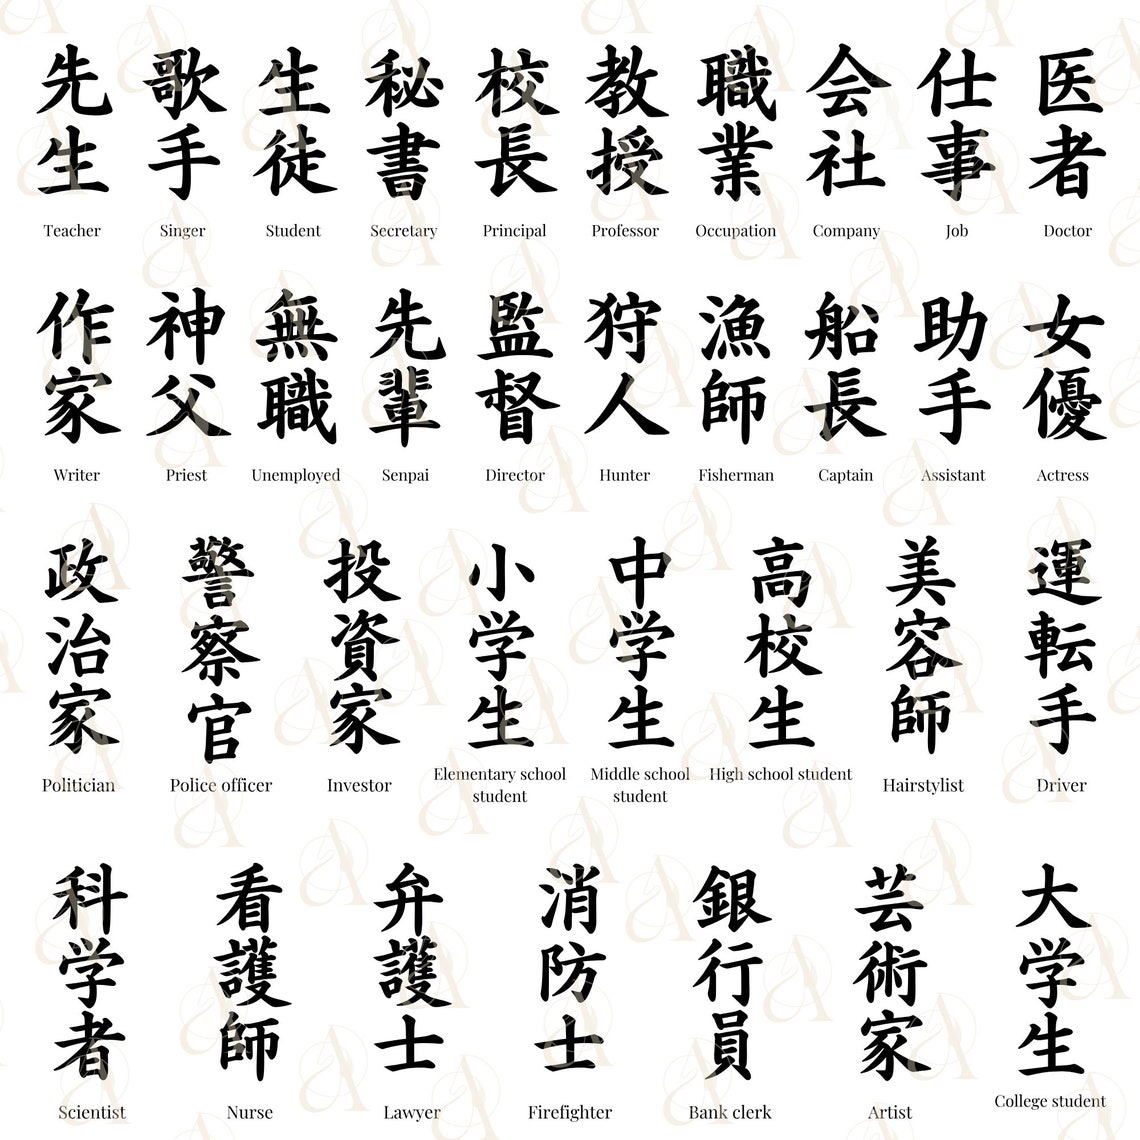 先生
Teacher
歌手
Singer
生徒
Student
秘書
Secretary
校長
Principal
教授
Professor
職業
Occupation
会社
Company
仕事
Job
医者
Doctor
作家
Writer
神父
Priest
無職
Unemployed
先輩
Senpai
監督
Director
狩人
Hunter
漁師
Fisherman
船長
Captain
助手
Assistant
女優
Actress
政治家
Politician
警察官
Police officer
投資家
Investor
小学生
Elementary school
student
中学生
Middle school
student
高校生
High school student
美容師
Hairstylist
運転手
Driver
科学者
Scientist
看護師
Nurse
弁護士
Lawyer
消防士
Firefighter
銀行員
Bank clerk
芸術家
Artist
大学生
College student